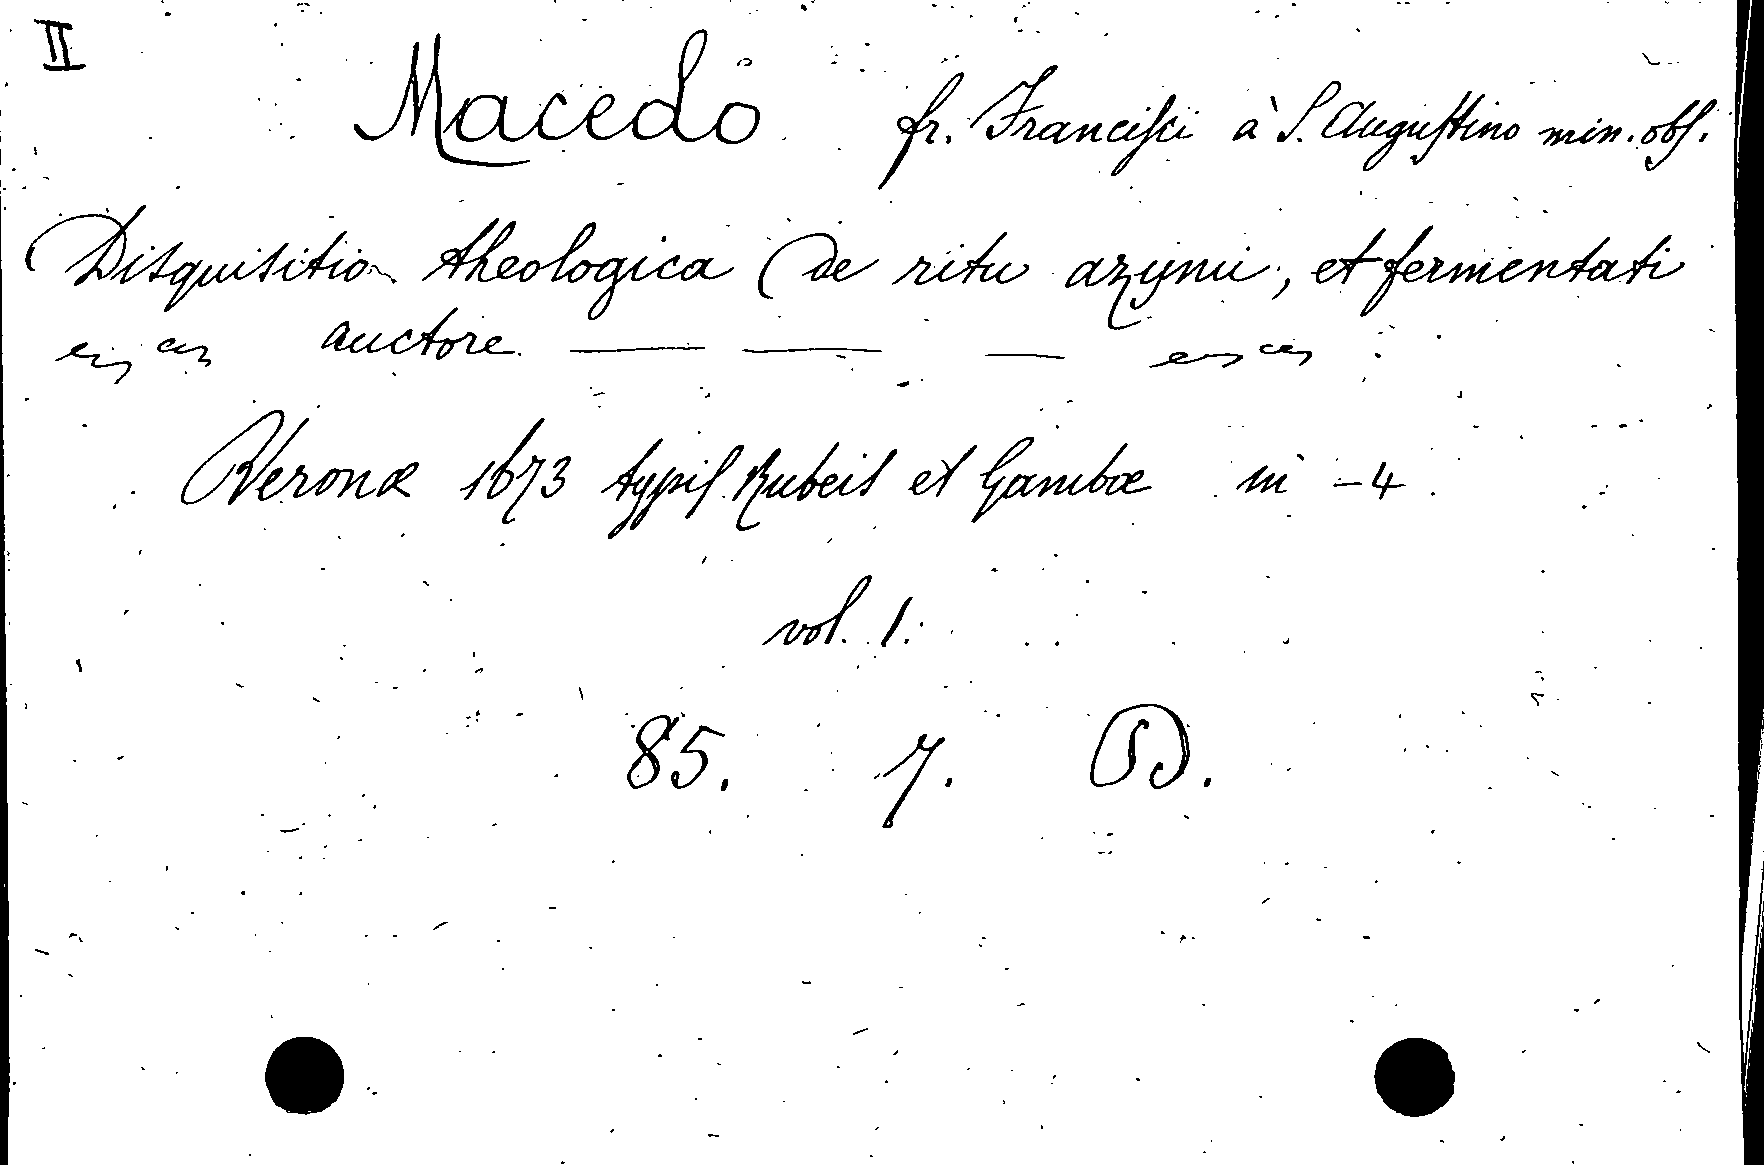 II
Macedo fr. Francisci à S. Augustino min. obs.
Disquisitio theologica De ritu azymi, et fermentati
auctore — — —
Veronæ 1673 typis Rubeis et Gambæ in - 4
vol. 1.
85. 7. D.